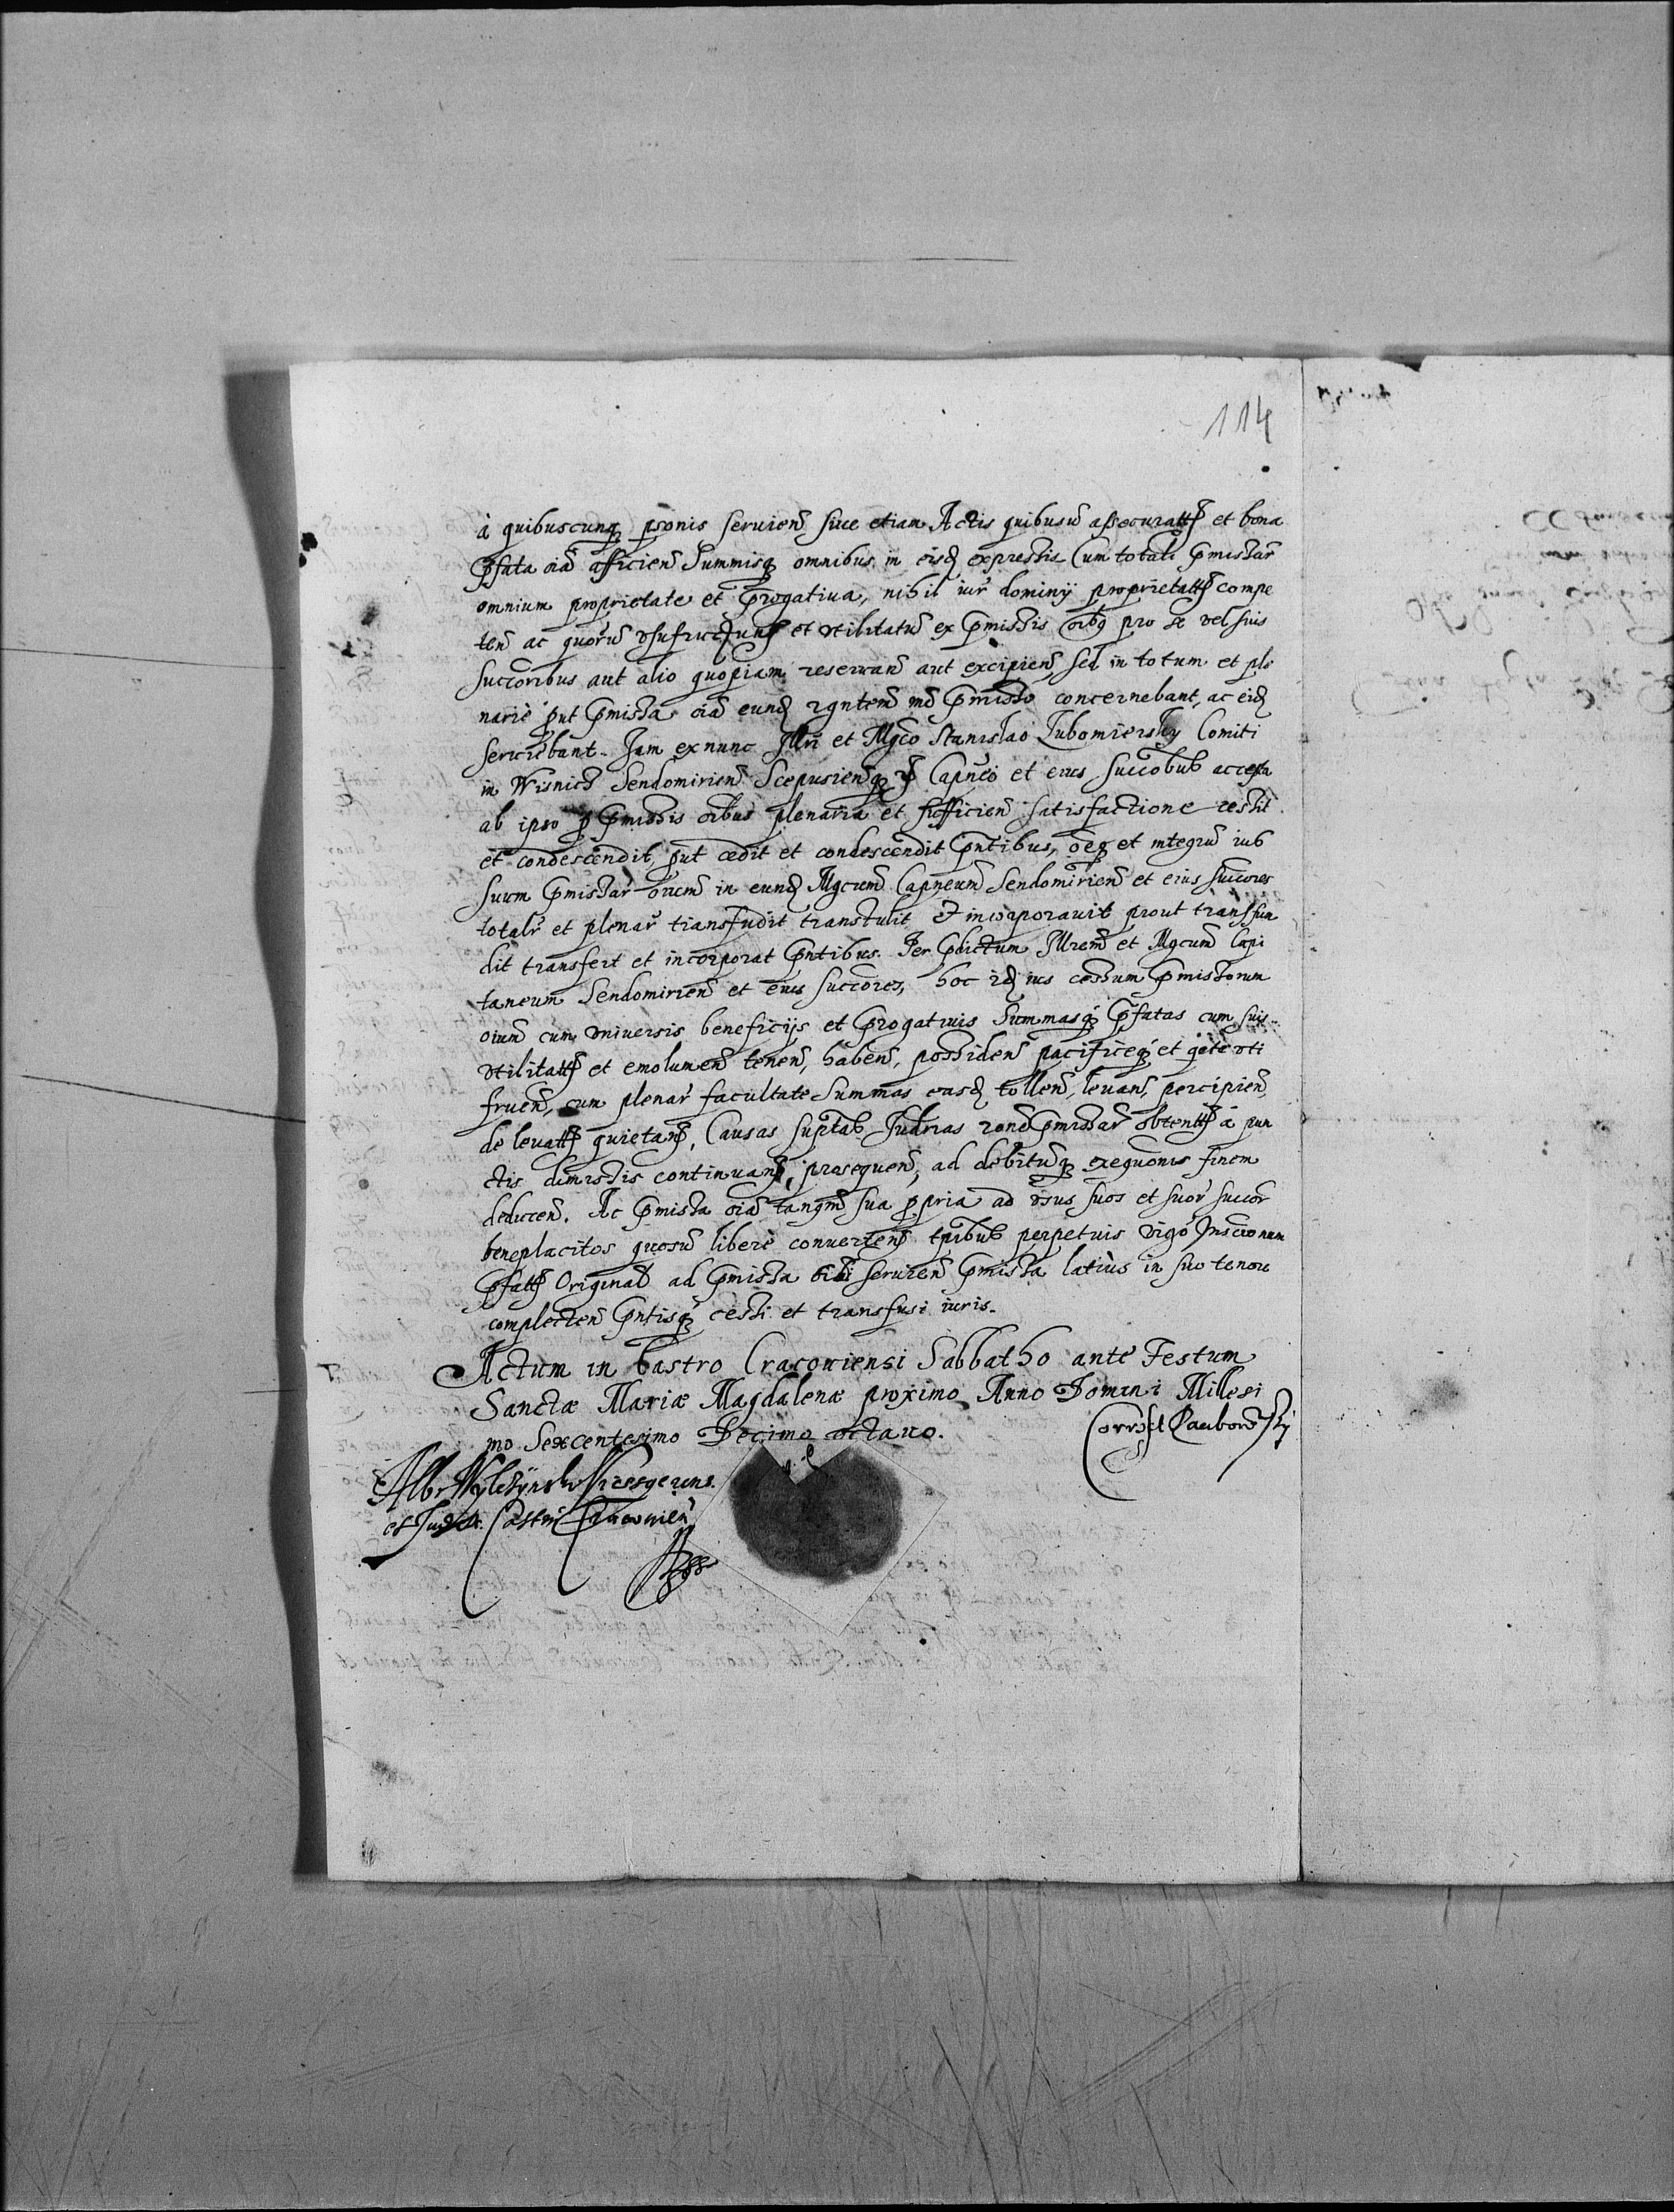 114
à quibuscunq personis seruien siue etiam Actis quibusuis assecuratis et bona
praefata oia afficien Summisq omnibus in eisd expressis Cum totali praemissar
omnium proprietate et praerogatiua, nihil iur dominÿ proprietatis compe
ten ac quorum vsufruct et vtilitatum ex praemissis oibus pro se vel suis
succoribus aut alio quopiam reseruan aut excipien, sed in totum et ple
narie put praemissa oia eund in praemisso concernebant, ac eid
seruiebant. Jam ex nunc Illri et Mgco Stanislao Lubomiersky Comiti
in Wisnicz Sendomirien Scepusienq Capneo et eius succobus accepta
ab ipso pro praemissis oibus plenaria et sufficien satisfactione cessit
et condescendit, put cedit et condescendit pntibus, oeq et integrum ius
suum praemissar oium in eund Mgcum Capneum Sendomirien et eius succores
totalr et plenar transfudit transtulit et incorporauit prout transfun
dit transfert et incorporat pntibus. Per praedictum Illrem et Mgcum Capi
taneum Sendomirien et eius succores, hoc id ius cessum praemissorum
oium cum vniuersis beneficijs et praerogatiuis Summasq praefatas cum suis
vtilitatis et emolumen tenen, haben, possiden pacificeq et quiete vti
fruen, cum plenar facultate Summas easd tollen, leuan, percipien,
de leuatis quietan, Causas praemissar obtentis à pun
ctis dimissis continuan, prosequen, ad debitumq exequonis finem
deducen. Ac praemissa oia tanqm sua ppria ad vsus suos et suor succor
beneplacitos quosuis libere conuerten tpibus perpetuis vigore Inscrionum
praefatis Original ad praemissa sibi seruien praemissa latius in suo tenore
complecten pntisq cessi et transfusi iuris.
Actum in Castro Cracouiensi Sabbatho ante Festum
Sanctæ Mariæ Magdalenæ proximo Anno Domini Millesi
mo Sexcentesimo Decimo octauo.
Vicesgerens
et Judex Castri Cracouien